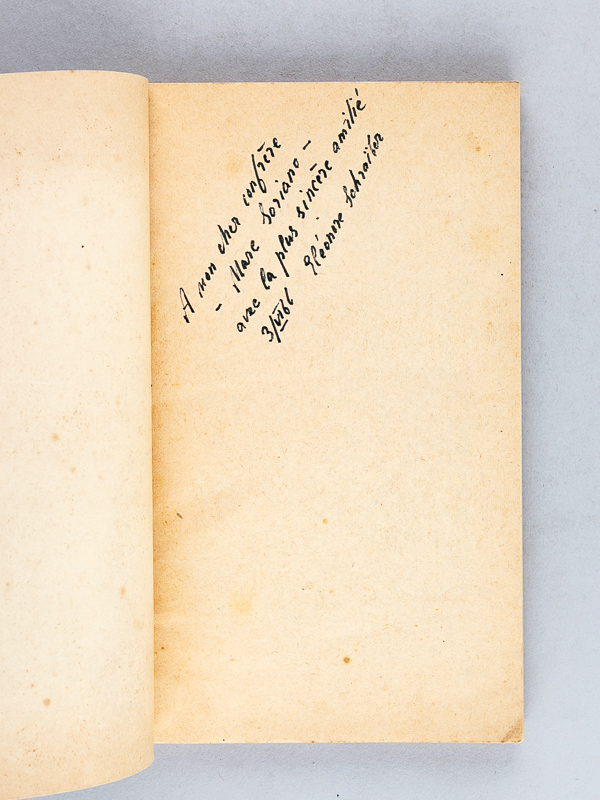 A mon cher confrère
- Marc Soriano -
avec la plus sincère amitié
3/VI66 Eléonore Schraiber